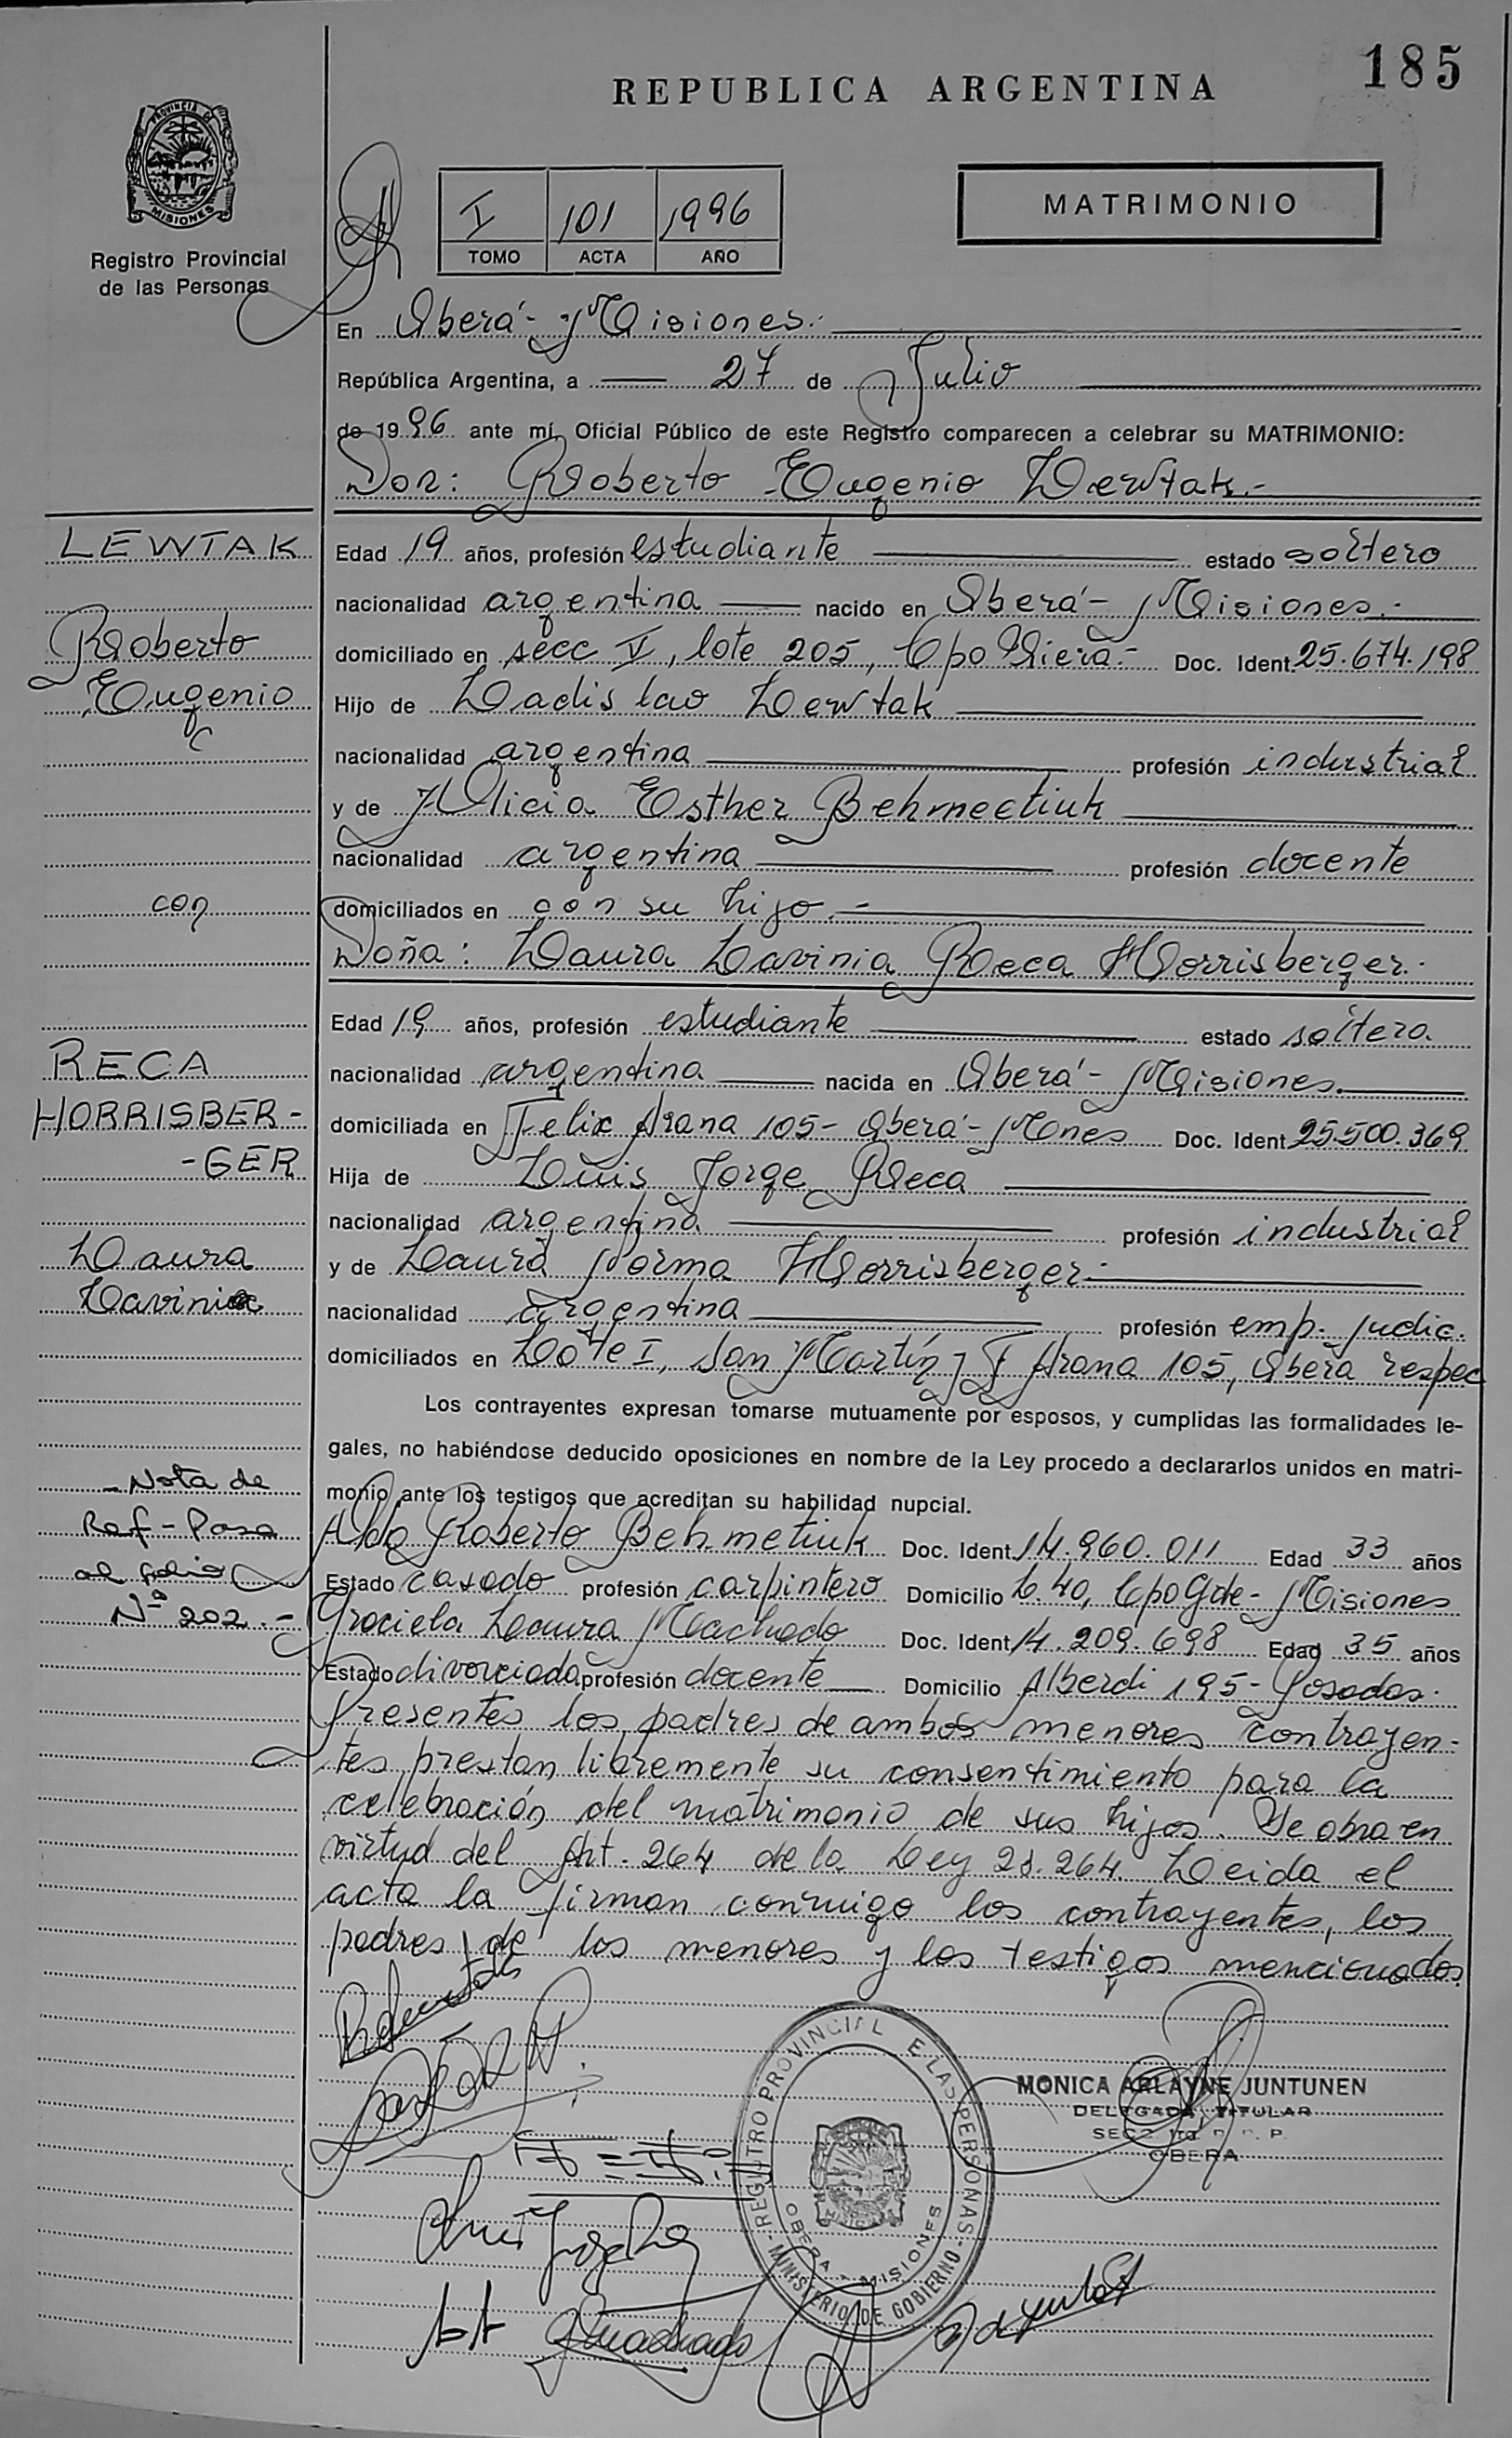 185
REPUBLICA ARGENTINA
PROVINCIA DE
MISIONES
Registro Provincial
de las Personas
I 101 1996
TOMO ACTA AÑO
MATRIMONIO
En Oberá - Misiones.-
República Argentina, a 27 de Julio
de 1996 ante mí, Oficial Público de este Registro comparecen a celebrar su MATRIMONIO:
Don: Roberto Eugenio Lewtak.-
LEWTAK
Edad 19 años, profesión estudiante estado soltero
nacionalidad argentina nacido en Oberá - Misiones.-
Roberto
domiciliado en secc V, lote 205, Cpo Viera.- Doc. Ident. 25.674.198
Eugenio
Hijo de Ladislao Lewtak
nacionalidad argentina profesión industrial
y de Alicia Esther Behmectiuk
nacionalidad argentina profesión docente
con
domiciliados en con su hijo.-
Doña: Laura Lavinia Reca Horrisberger.-
Edad 19 años, profesión estudiante estado soltera
RECA
nacionalidad argentina nacida en Oberá - Misiones.
HORRISBER-
domiciliada en Felix Arana 105 - Oberá - Mnes Doc. Ident. 25.500.369
-GER
Hija de Luis Jorge Reca
nacionalidad argentina profesión industrial
Laura
y de Laura Norma Horrisberger.-
Lavinia
nacionalidad argentina profesión emp. judic.
domiciliados en Lote I, San Martín y F Arana 105, Oberá respec
Los contrayentes expresan tomarse mutuamente por esposos, y cumplidas las formalidades le-
gales, no habiéndose deducido oposiciones en nombre de la Ley procedo a declararlos unidos en matri-
- Nota de
monio ante los testigos que acreditan su habilidad nupcial.
Ref - Pasa
Aldo Roberto Behmetiuk Doc. Ident. 14.960.011 Edad 33 años
al folio
Estado casado profesión carpintero Domicilio L.40, Cpo Gde - Misiones
Nº 202.-
Graciela Laura Machado Doc. Ident. 14.209.698 Edad 35 años
Estado divorciada profesión docente Domicilio Alberdi 195 - Posadas.
Presentes los padres de ambos menores contrayen-
tes prestan libremente su consentimiento para la
celebración del matrimonio de sus hijos. Se obra en
virtud del Art. 264 de la Ley 23.264. Leida el
acta la firman conmigo los contrayentes, los
padres de los menores y los testigos mencionados.
REGISTRO PROVINCIAL DE LAS PERSONAS
OBERA - MISIONES
MINISTERIO DE GOBIERNO
MONICA ARLAYNE JUNTUNEN
DELEGADA TITULAR
OBERA